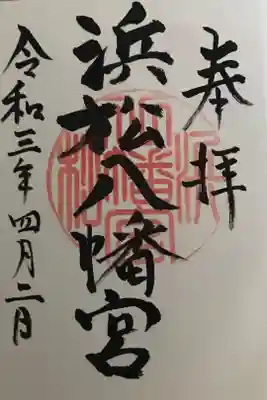 奉拝
浜松八幡宮
令和三年四月二日